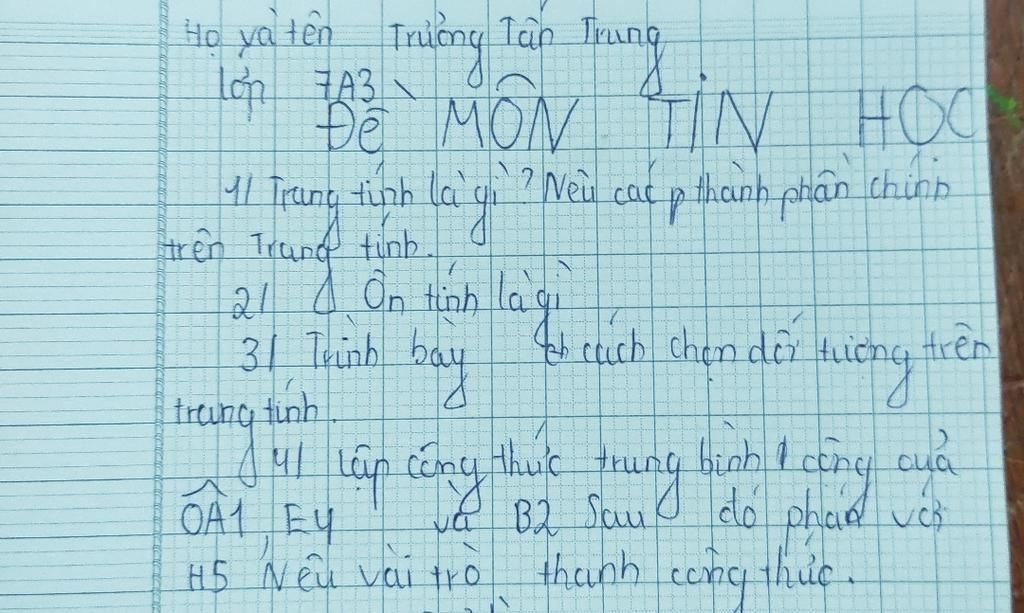 Họ và tên Trương Tấn Trung
lớp 7A3
ĐỀ MÔN TIN HOC
1/ Trang tính là gì? Nêu các thành phần chính
trên Trang tính.
2/ Ôn tính là gì
3/ Trình bày cách chọn đối tượng trên
trang tính.
4/ Lập công thức trung bình cộng của
ÔA1, E4 và B2 sau đó phân với
H5 Nêu vài trò thanh công thức.